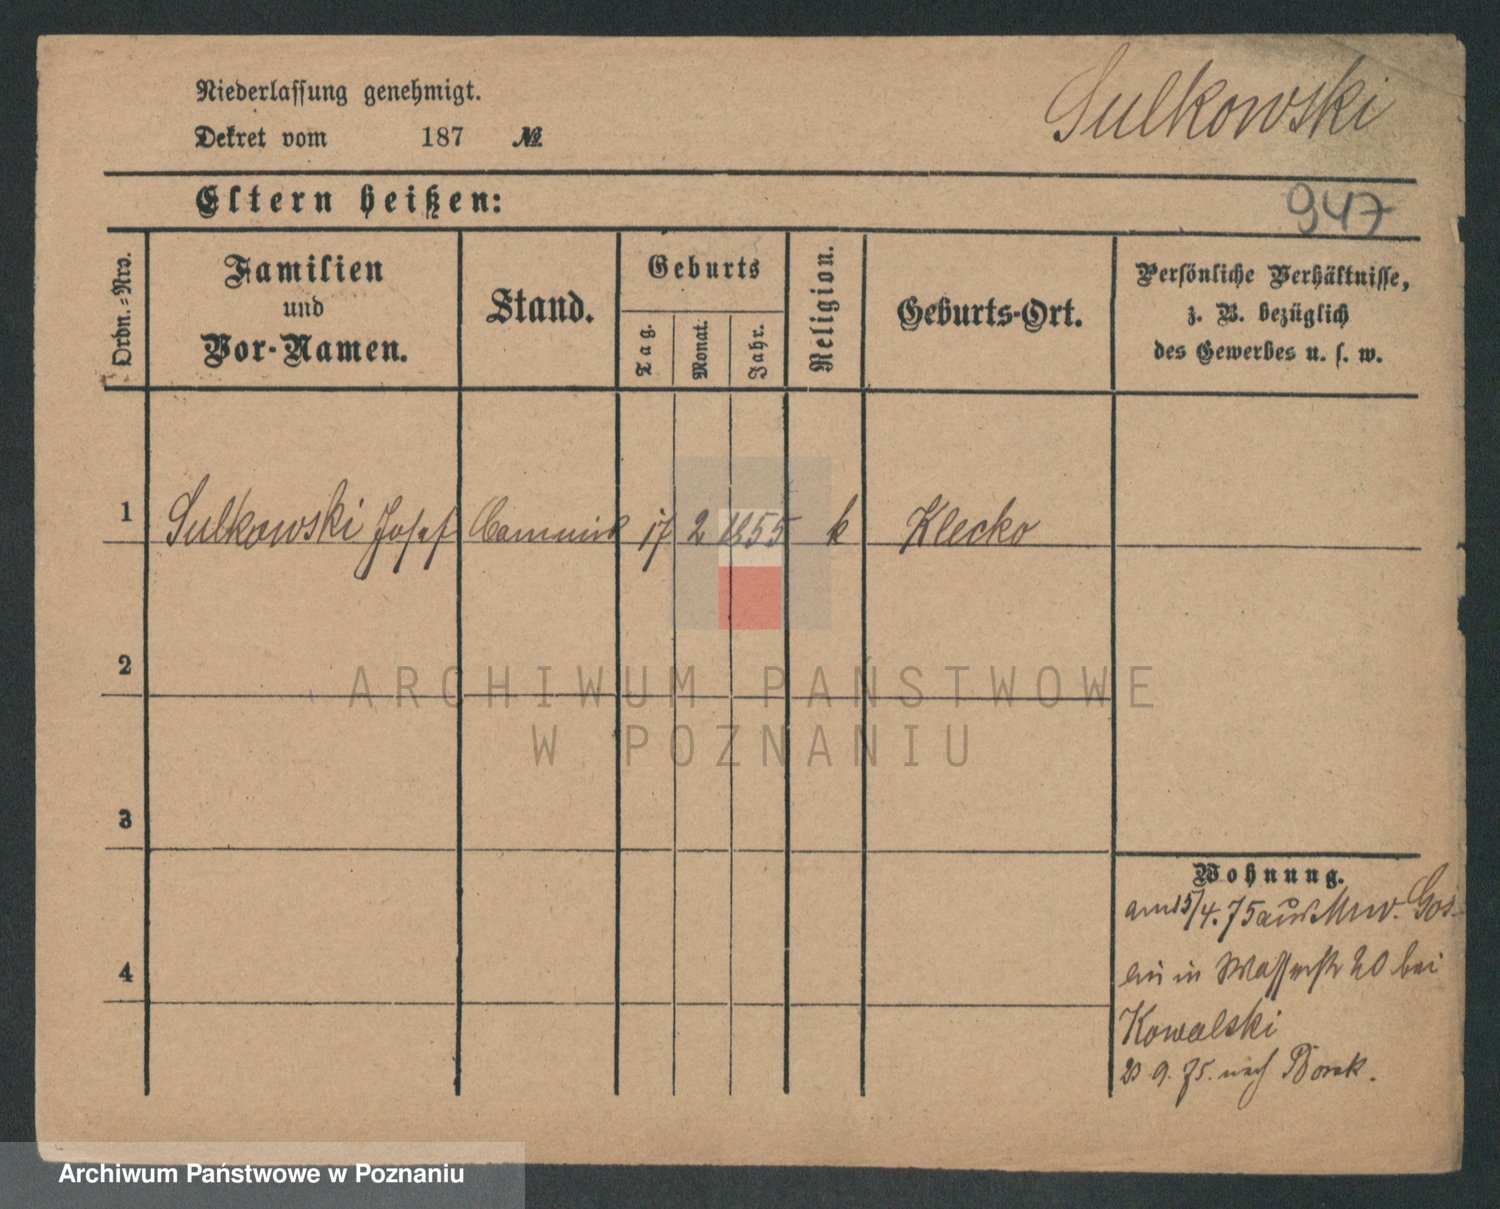 Niederlassung genehmigt.
Sulkowski
Dekret vom 187 №
Eltern heißen:
947
Ordn.=Nro.
Familien und Vor-Namen.
Stand.
Geburts
Tag.
Monat.
Jahr.
Religion.
Geburts-Ort.
Persönliche Verhältnisse,
z. B. bezüglich
des Gewerbes u. s. w.
1 Sulkowski Josef Commis 17 2 1855 k Klecko
2
ARCHIWUM PAŃSTWOWE
W POZNANIU
3
Wohnung.
am 15/4. 75 aus Mur. Gos-
lin in Wasserstr 20 bei
4
Kowalski
9. 75. nach Borek.
Archiwum Państwowe w Poznaniu